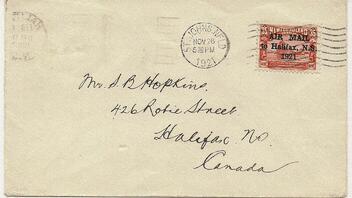 ST. JOHN'S N.F.L.D.
NOV 26
6 PM
1921
NEWFOUNDLAND
35 35
AIR MAIL
to Halifax, N.S.
1921
Mr. S B Hopkins,
426 Robie Street
Halifax N.S.
Canada